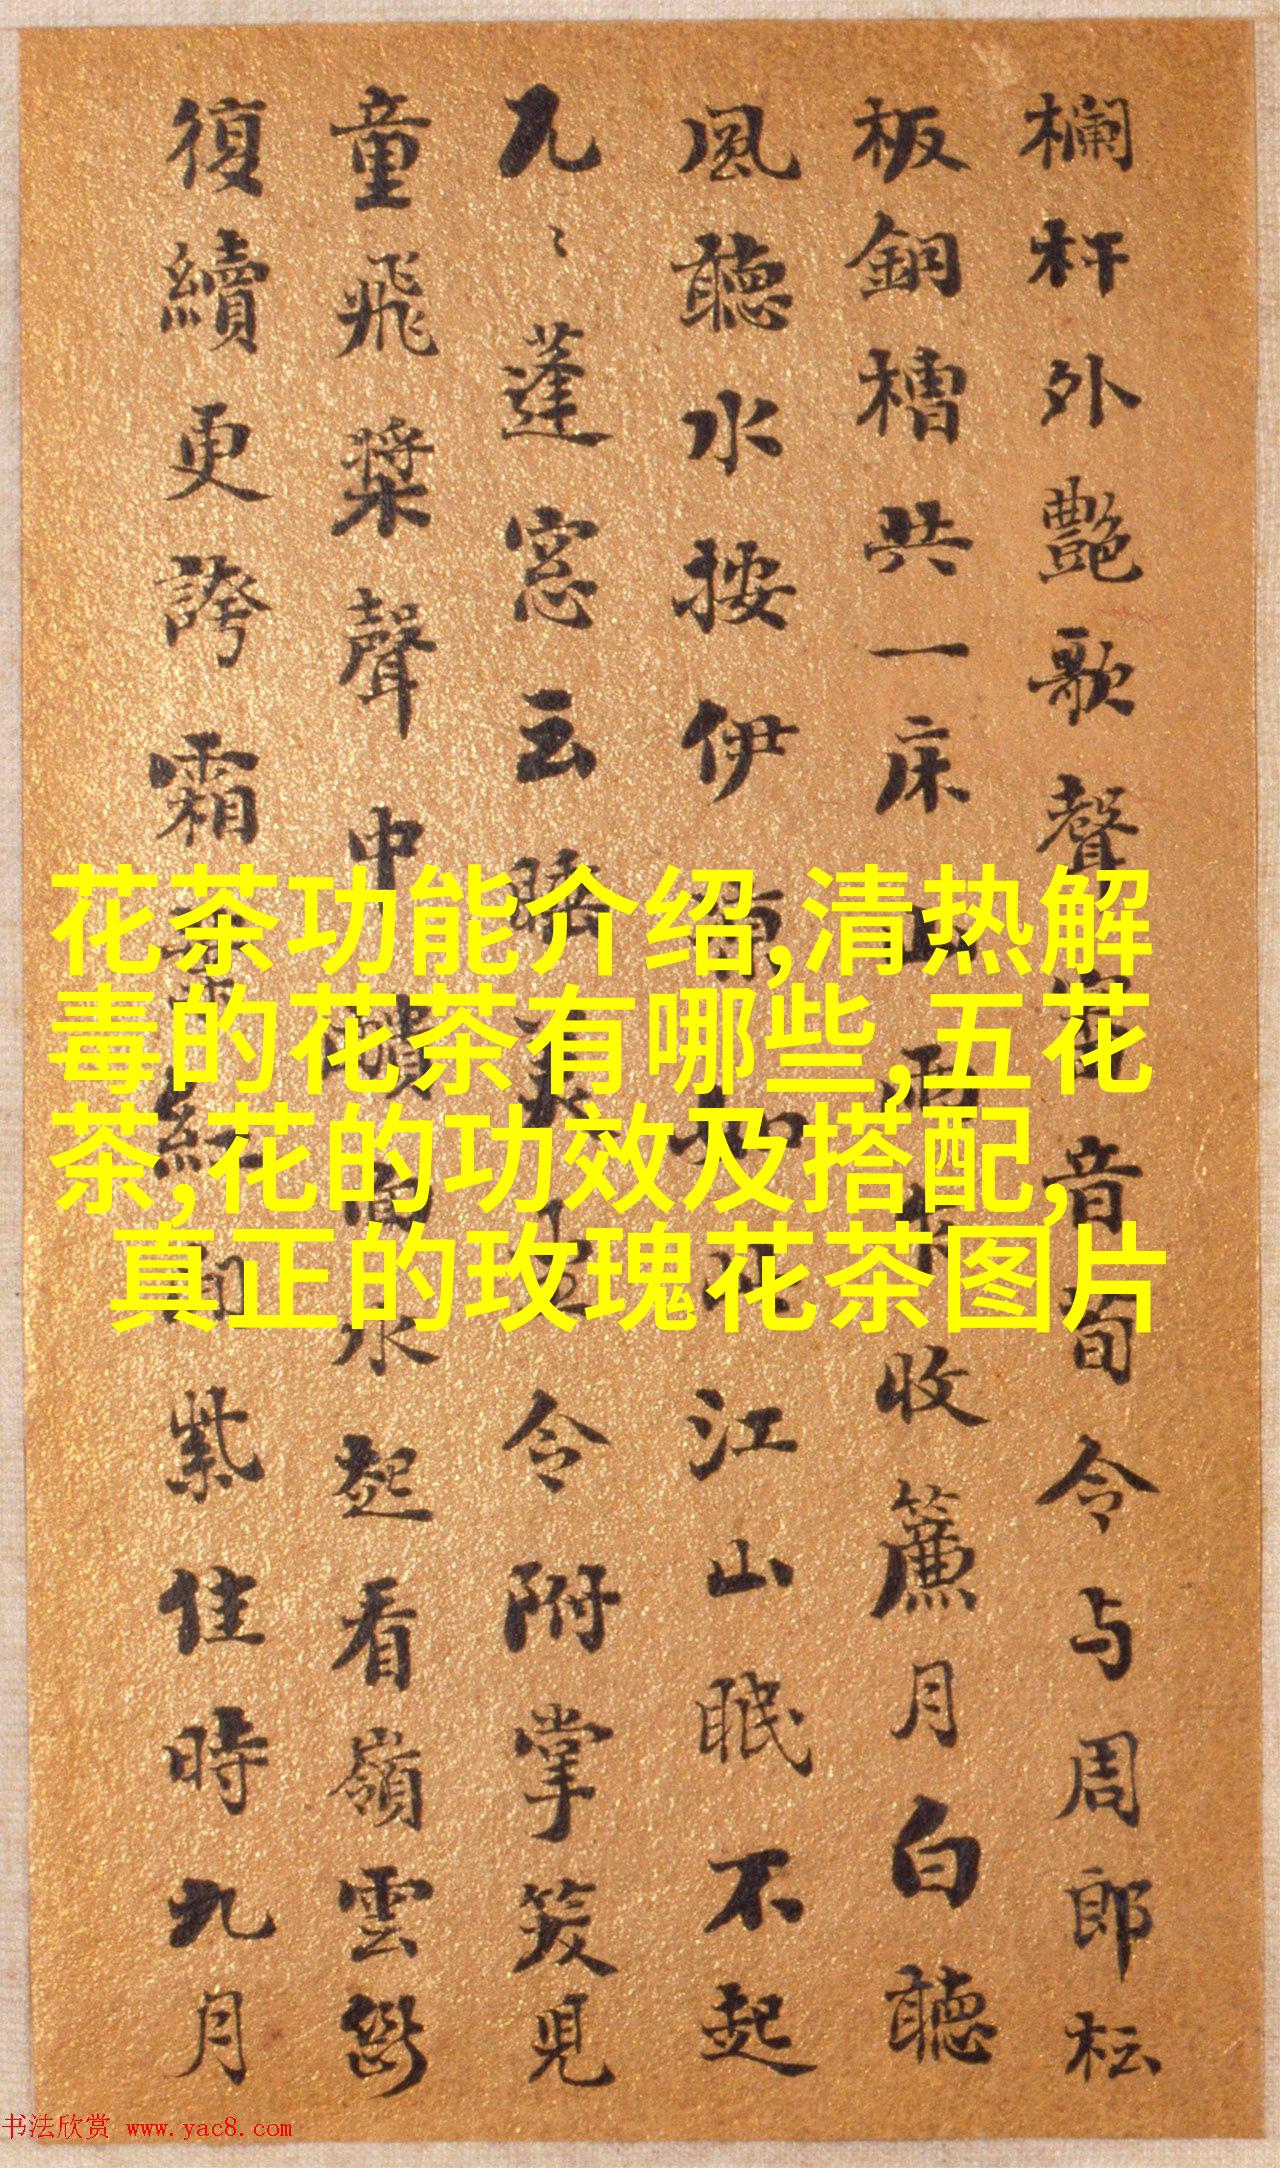 欄杆外艷歌聲音令与周郎
板銅槽共一床收簾月白聽
風聽水按伊涼如江山眠不起
蓬窓云睡美令附掌笑見
童飛槳聲中面水起看嶺雲
復續更誇霜紅紫佳時九月
花茶功能介绍,清热解
毒的花茶有哪些,五花
茶,花的功效及搭配,
真正的玫瑰花茶图片
书法欣赏 www.yac8.com